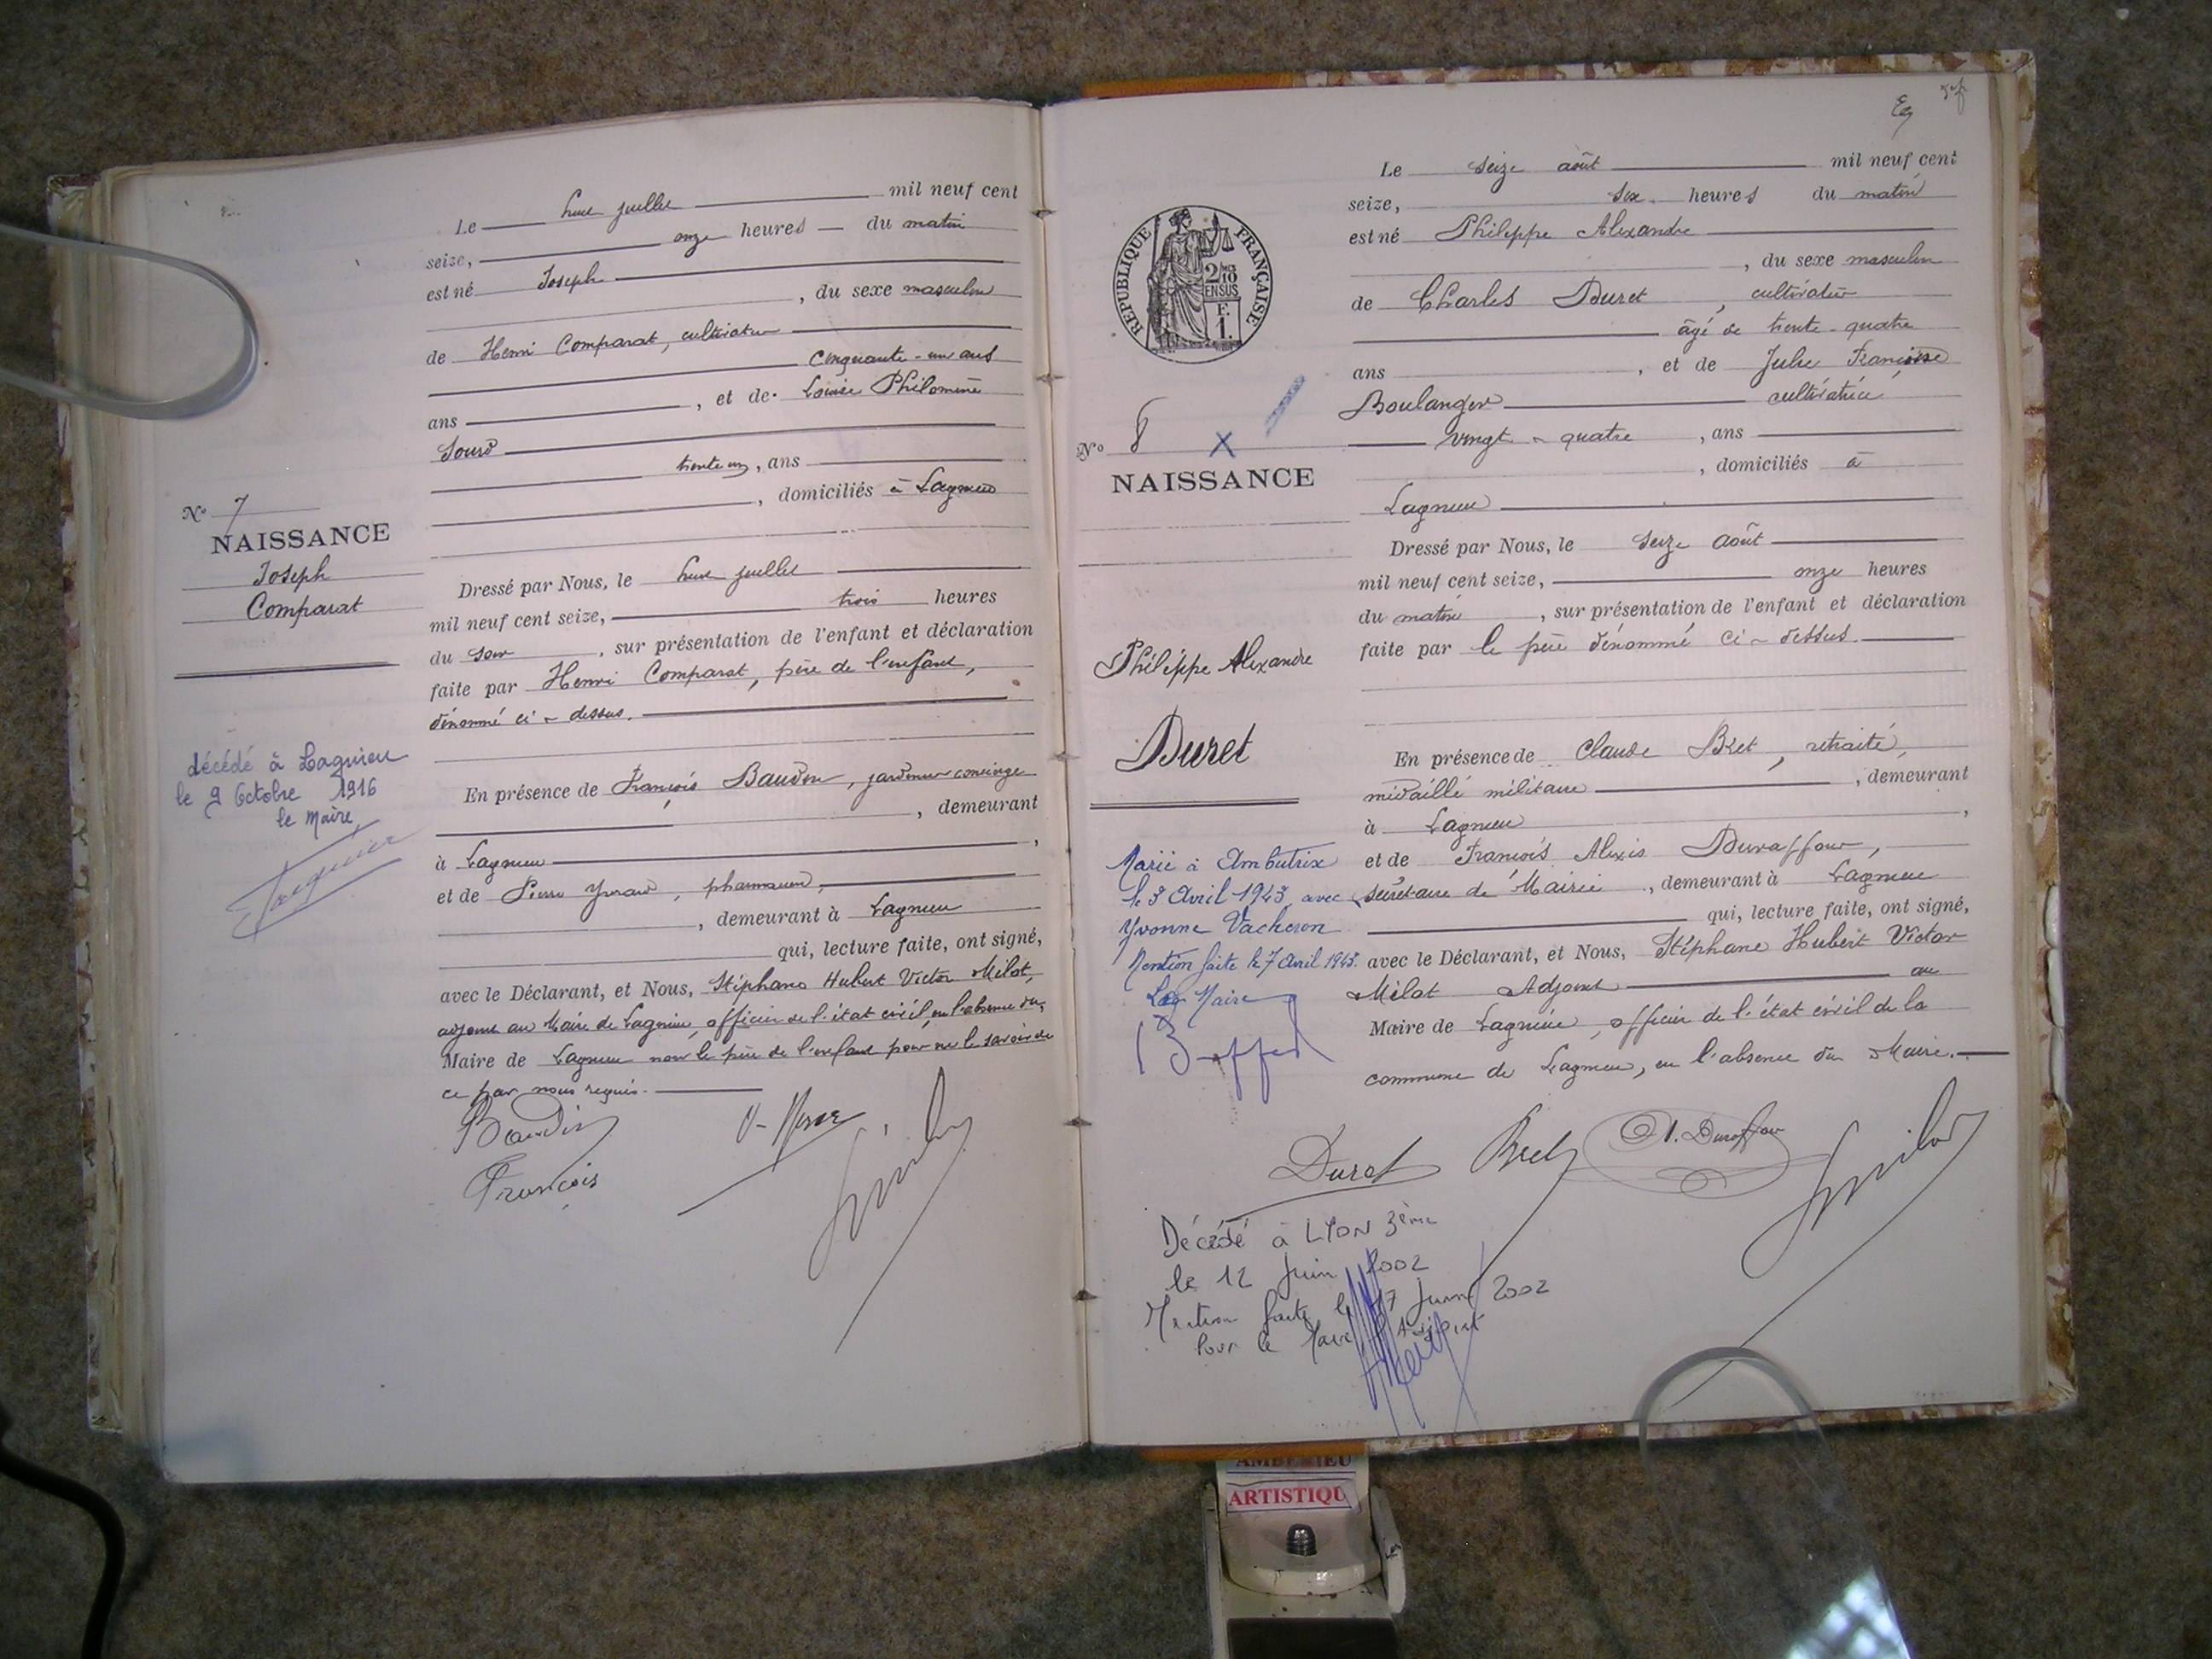 Le juillet mil neuf cent
seize, onze heures du matin
est né Joseph
, du sexe masculin
de Henri Comparat, cultivateur
cinquante-un ans
ans , et de Louise Philomène
Sourd
trente un, ans
, domiciliés à Lagnieu
No 7
NAISSANCE
Joseph
Comparat
Dressé par Nous, le juillet
mil neuf cent seize, trois heures
du soir , sur présentation de l'enfant et déclaration
faite par Henri Comparat, père de l'enfant,
dénommé ci-dessus.
décédé à Lagnieu
le 9 Octobre 1916
le Maire
En présence de François Baudin, jardinier concierge
, demeurant
à Lagnieu ,
et de Pierre , pharmacien,
, demeurant à Lagnieu
qui, lecture faite, ont signé,
avec le Déclarant, et Nous, Stéphane Hubert Victor Milat,
adjoint au Maire de Lagnieu, officier de l'état civil, en l'absence du,
Maire de Lagnieu non le père de l'enfant pour ne le savoir de
ce par nous requis.
Baudin
François
Le seize août mil neuf cent
seize, six heures du matin
est né Philippe Alexandre
, du sexe masculin
de Charles Duret, cultivateur
âgé de trente-quatre
ans , et de Julie Françoise
Boulanger cultivatrice
vingt-quatre , ans
, domiciliés à
Lagnieu
RÉPUBLIQUE FRANÇAISE
2/10 EN SUS
F. 1.
No 8 X
NAISSANCE
Philippe Alexandre
Duret
Dressé par Nous, le seize août
mil neuf cent seize, onze heures
du matin , sur présentation de l'enfant et déclaration
faite par le père dénommé ci-dessus.
En présence de Claude Bret, retraité,
médaillé militaire , demeurant
à Lagnieu ,
et de François Alexis Duraffour,
secrétaire de Mairie , demeurant à Lagnieu
qui, lecture faite, ont signé,
avec le Déclarant, et Nous, Stéphane Hubert Victor
Milat Adjoint au
Maire de Lagnieu, officier de l'état civil de la
commune de Lagnieu, en l'absence du Maire.
Marié à Ambutrix
le 3 Avril 1943 avec
Yvonne Vacheron
Mention faite le 7 Avril 1943.
Le Maire
Duret Bret A. Duraffour
Décédé à LYON 3ème
le 12 Juin 2002
Mention faite le 17 Juin 2002
Pour le Maire
AMBERIEU
ARTISTIQU